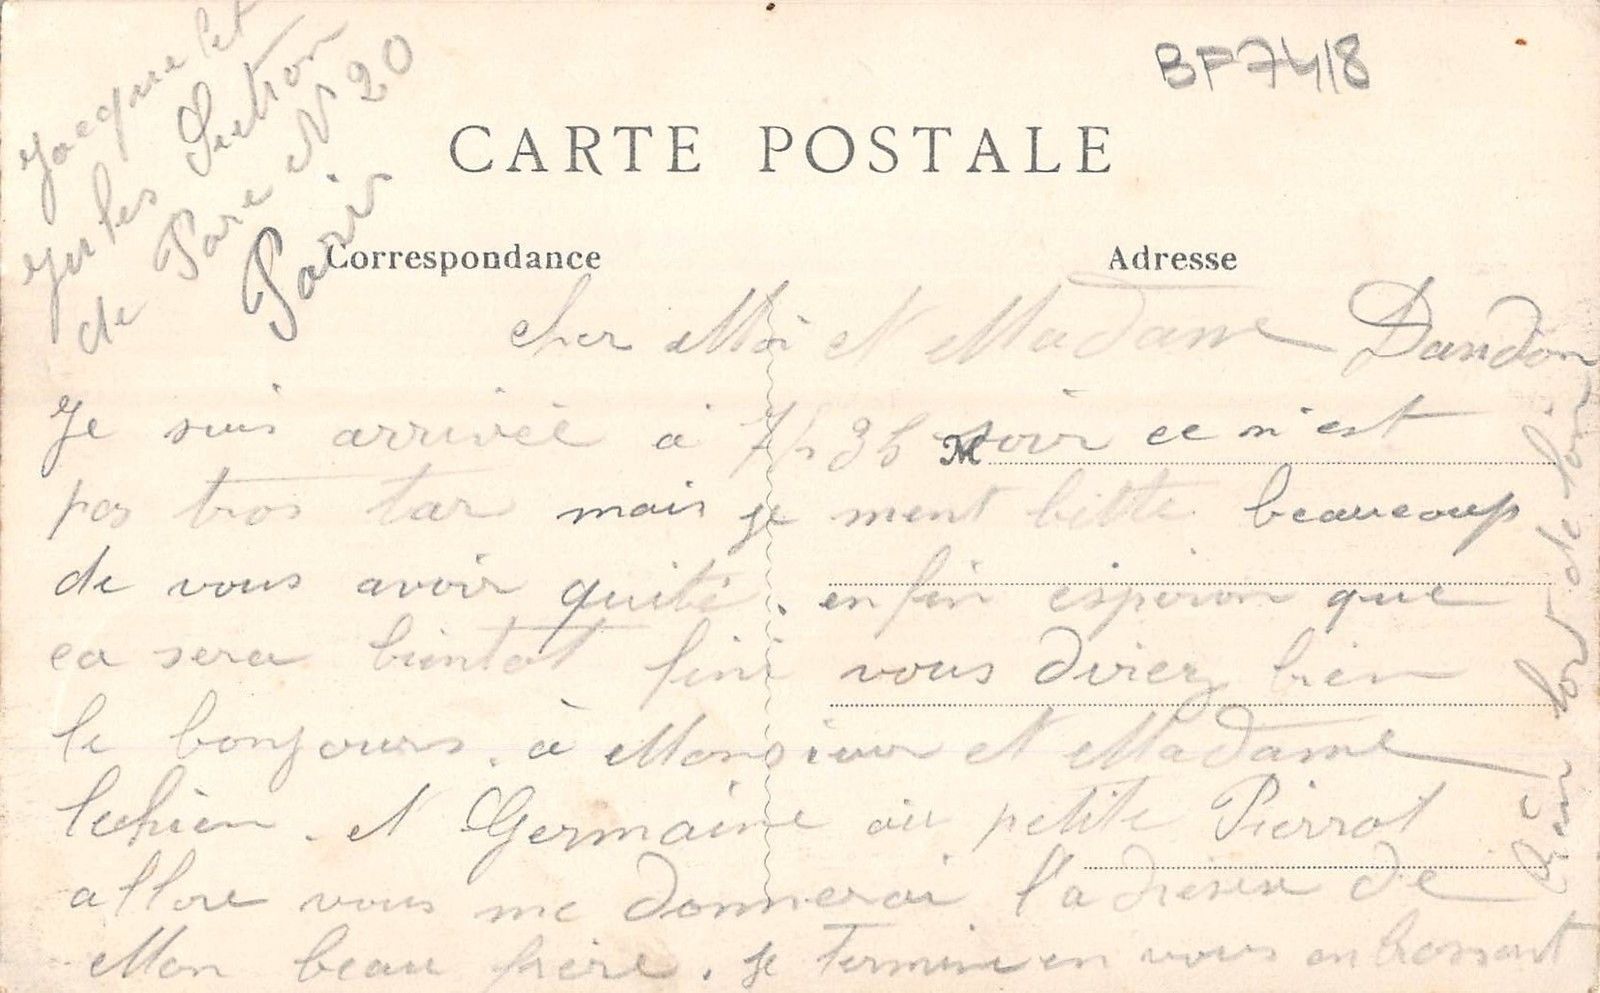 BF7418
Jacquelet
Jules Section
de Parc N 20
Paris
CARTE POSTALE
Correspondance
Adresse
cher Moi et Madame Dandon
Je suis arrivée a 7h35 soir ce n'est
M
pas tros tar mais je ment bette beaucoup
de vous avoir quité. enfin esperon que
ca sera bientot fini vous direz bien
le bonjours. à Monsieur et Madame
lechien. et Germaine au petite Pierrot
allore vous me donnerai l'adresse de
Mon beau frère. je termine en vous embrassant
bien fort de loin